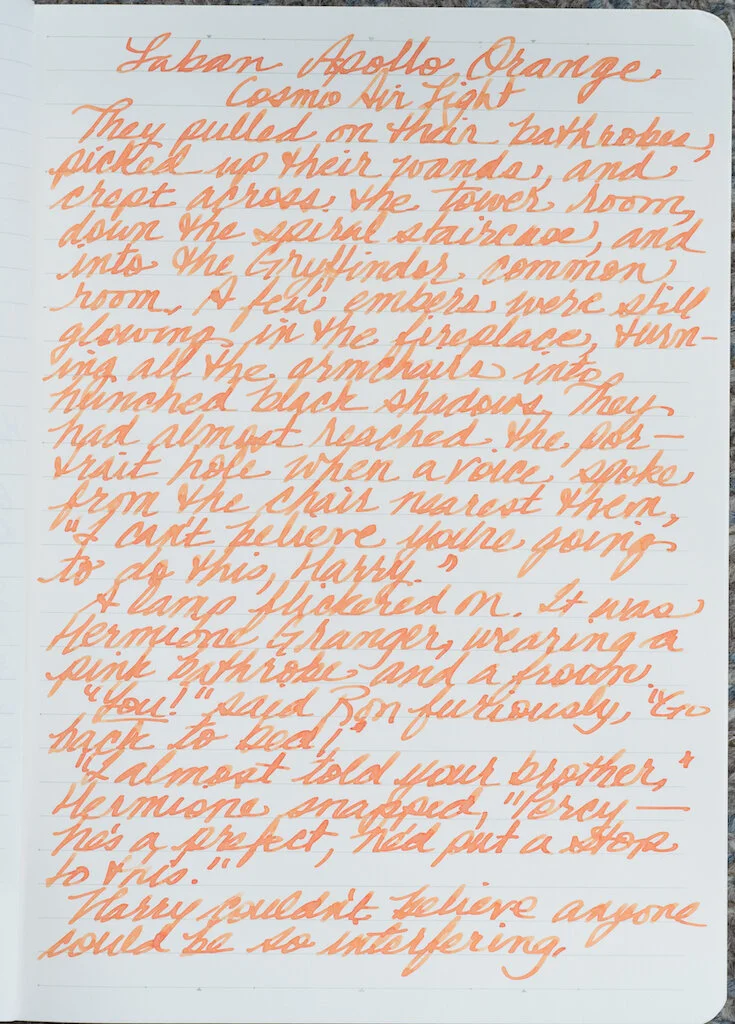 Laban Apollo Orange
Cosmo Air Light
They pulled on their bathrobes,
picked up their wands, and
crept across the tower room,
down the spiral staircase, and
into the Gryffindor common
room. A few embers were still
glowing in the fireplace, turn-
ing all the armchairs into
hunched black shadows. They
had almost reached the por-
trait hole when a voice spoke
from the chair nearest them,
"I can't believe you're going
to do this, Harry."
A lamp flickered on. It was
Hermione Granger, wearing a
pink bathrobe and a frown.
"You!" said Ron furiously, "Go
back to bed!"
"I almost told your brother,"
Hermione snapped, "Percy —
he's a prefect, he'd put a stop
to this."
Harry couldn't believe anyone
could be so interfering.